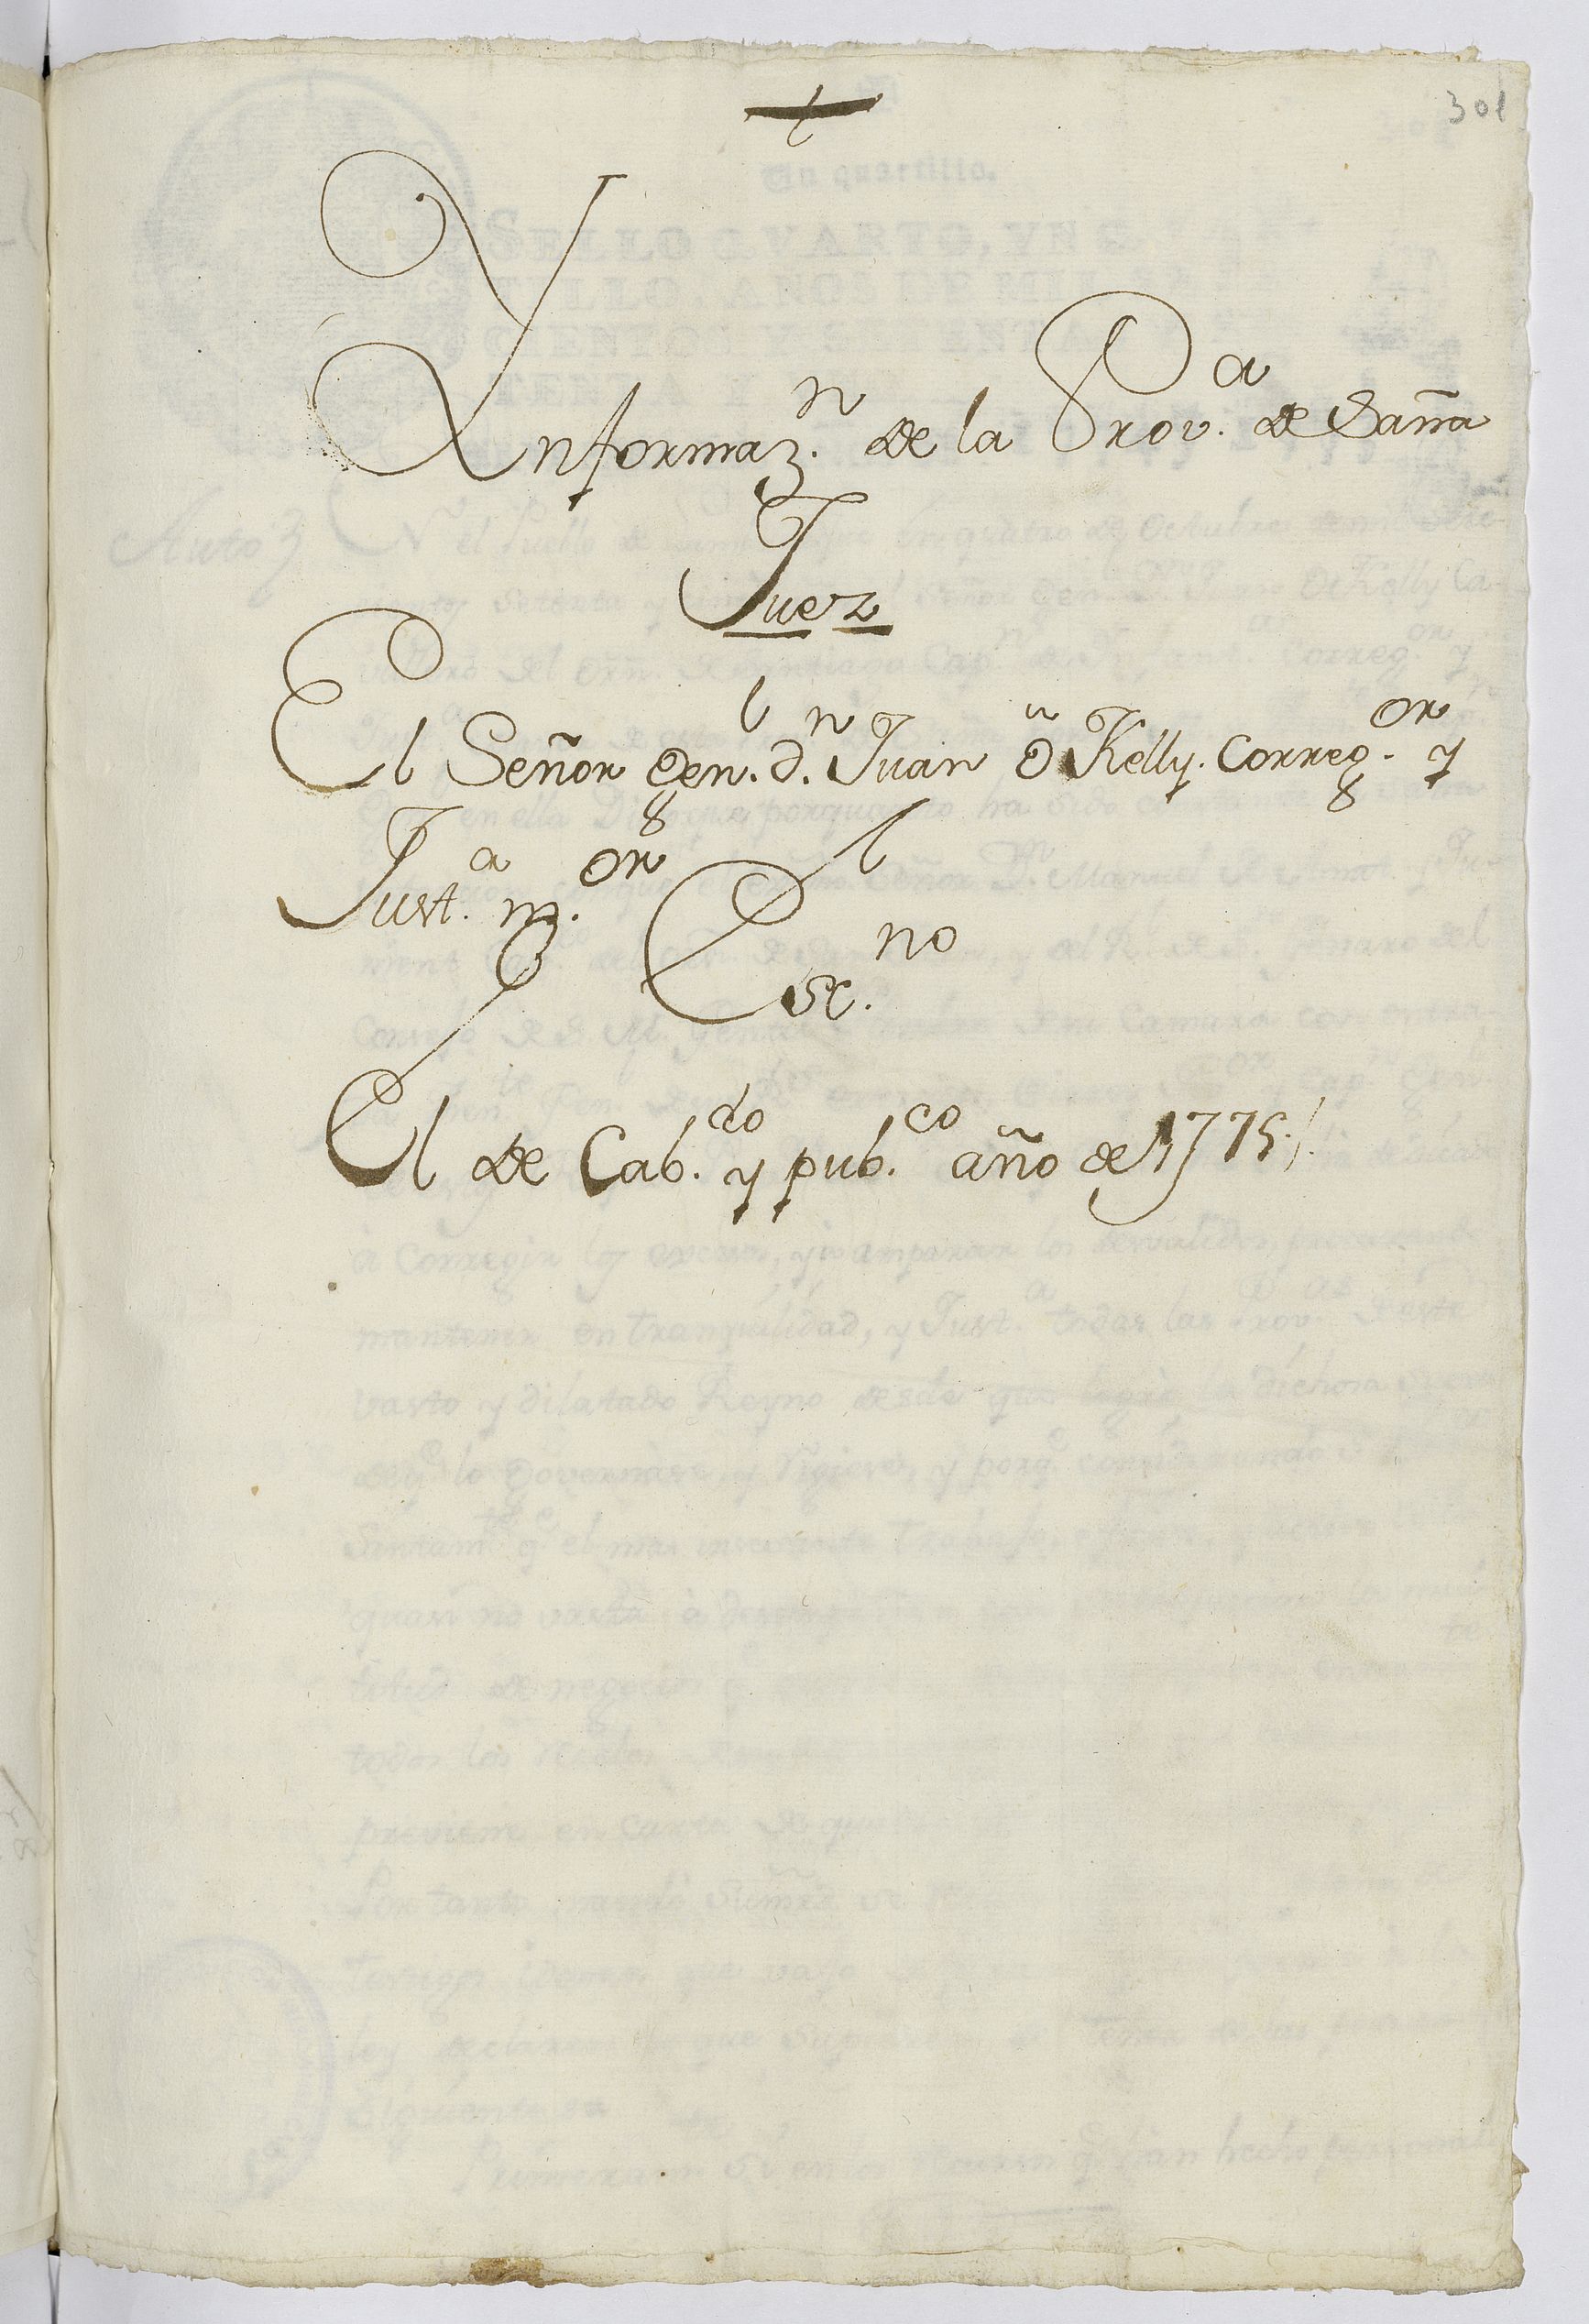 301
Ynformaz.n de la Prov.a de Saña
Juez
El Señor Gen.l d.n Juan O Kelly Correg.or y
Just.a m.or
Esc.no
El de Cab.do y pub.co año de 1775